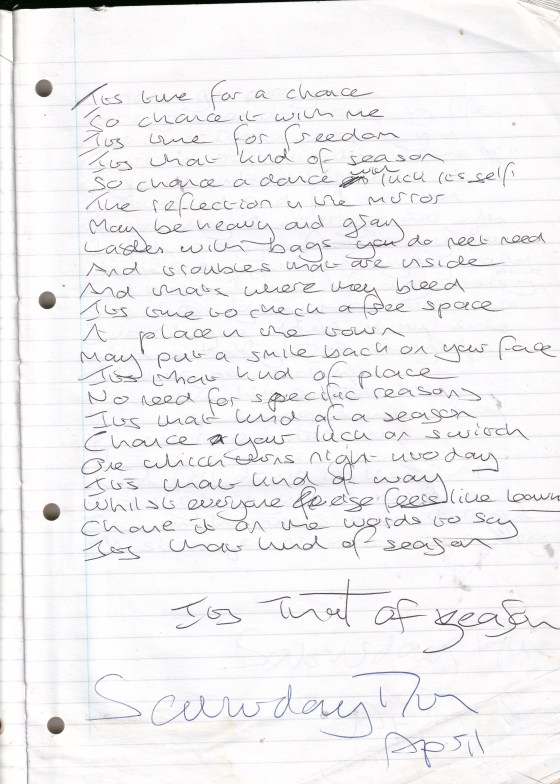 Its time for a chance
So chance it with me
Its time for freedom
Its that kind of season
So chance a dance with luck its self
The reflection in the mirror
May be heavy and gray
Laden with bags you do not need
And troubles that are inside
And thats where they bleed
Its time to check a free space
A place in the town
May put a smile back on your face
Its that kind of place
No need for specific reasons
Its that kind of a season
Chance your luck on switch
One which turns night into day
Its that kind of way
Whilst everyone else feels like
Chance it on the words to say
Its that kind of season
Its That of season
Saturday 17th
April